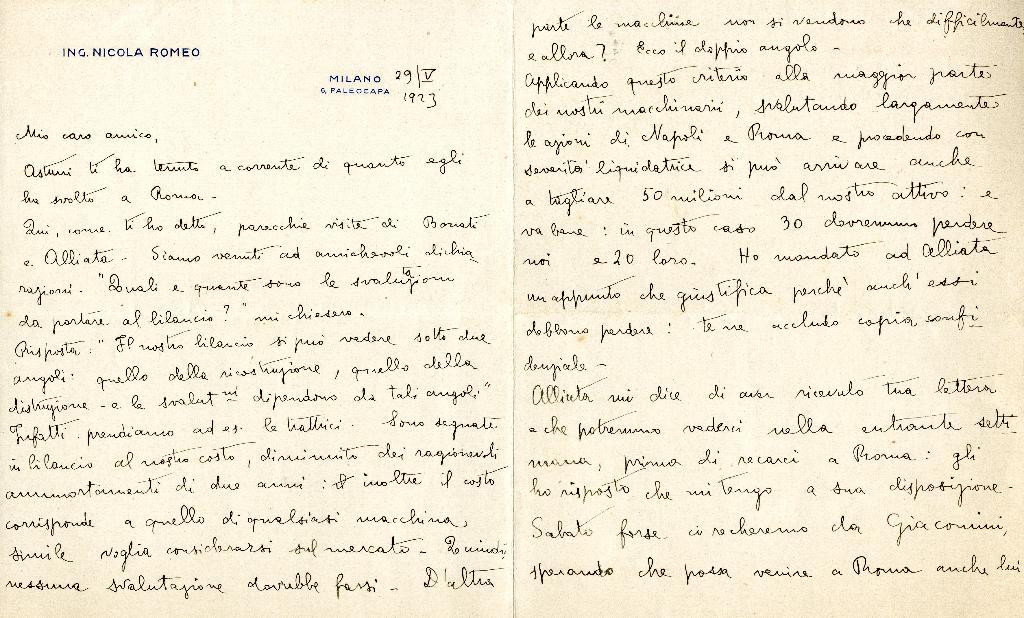 ING. NICOLA ROMEO
MILANO 29/V
6, PALEOCAPA 1923
Mio caro amico,
Astuni ti ha tenuto a corrente di quanto egli
ha svolto a Roma -
Qui, come ti ho detto, parecchie visite di Bonati
e Alliata - Siamo venuti ad amichevoli dichia
razioni. "Quali e quante sono le svalutazioni
da portare al bilancio?" mi chiesero.
Risposta: "Il nostro bilancio si può vedere sotto due
angoli: quello della ricostruzione, quello della
distruzione - e le svalut.ni dipendono da tali angoli"
Infatti prendiamo ad es. le trattrici. Sono segnate
in bilancio al nostro costo, diminuito dei ragionevoli
ammortamenti di due anni: inoltre il costo
corrisponde a quello di qualsiasi macchina,
simile voglia considerarsi sul mercato - Quindi
nessuna svalutazione dovrebbe farsi - D'altra
parte le macchine non si vendono che difficilmente,
e allora? Ecco il doppio angolo -
Applicando questo criterio alla maggior parte
dei nostri macchinarii, svalutando largamente
le azioni di Napoli e Roma e procedendo con
severità liquidatrice si può arrivare anche
a togliare 50 milioni dal nostro attivo: e
va bene: in questo caso 30 dovremmo perdere
noi e 20 loro. Ho mandato ad Alliata
un appunto che giustifica perchè anch'essi
debbono perdere: te ne accludo copia confi
denziale -
Alliata mi dice di aver ricevuto tua lettera
e che potremmo vederci nella entrante setti
mana, prima di recarci a Roma: gli
ho risposto che mi tengo a sua disposizione -
Sabato forse ci recheremo da Giacomini,
sperando che possa venire a Roma anche lui